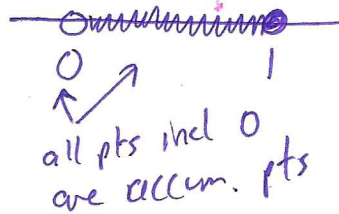 0 1
all pts incl 0
are accum. pts